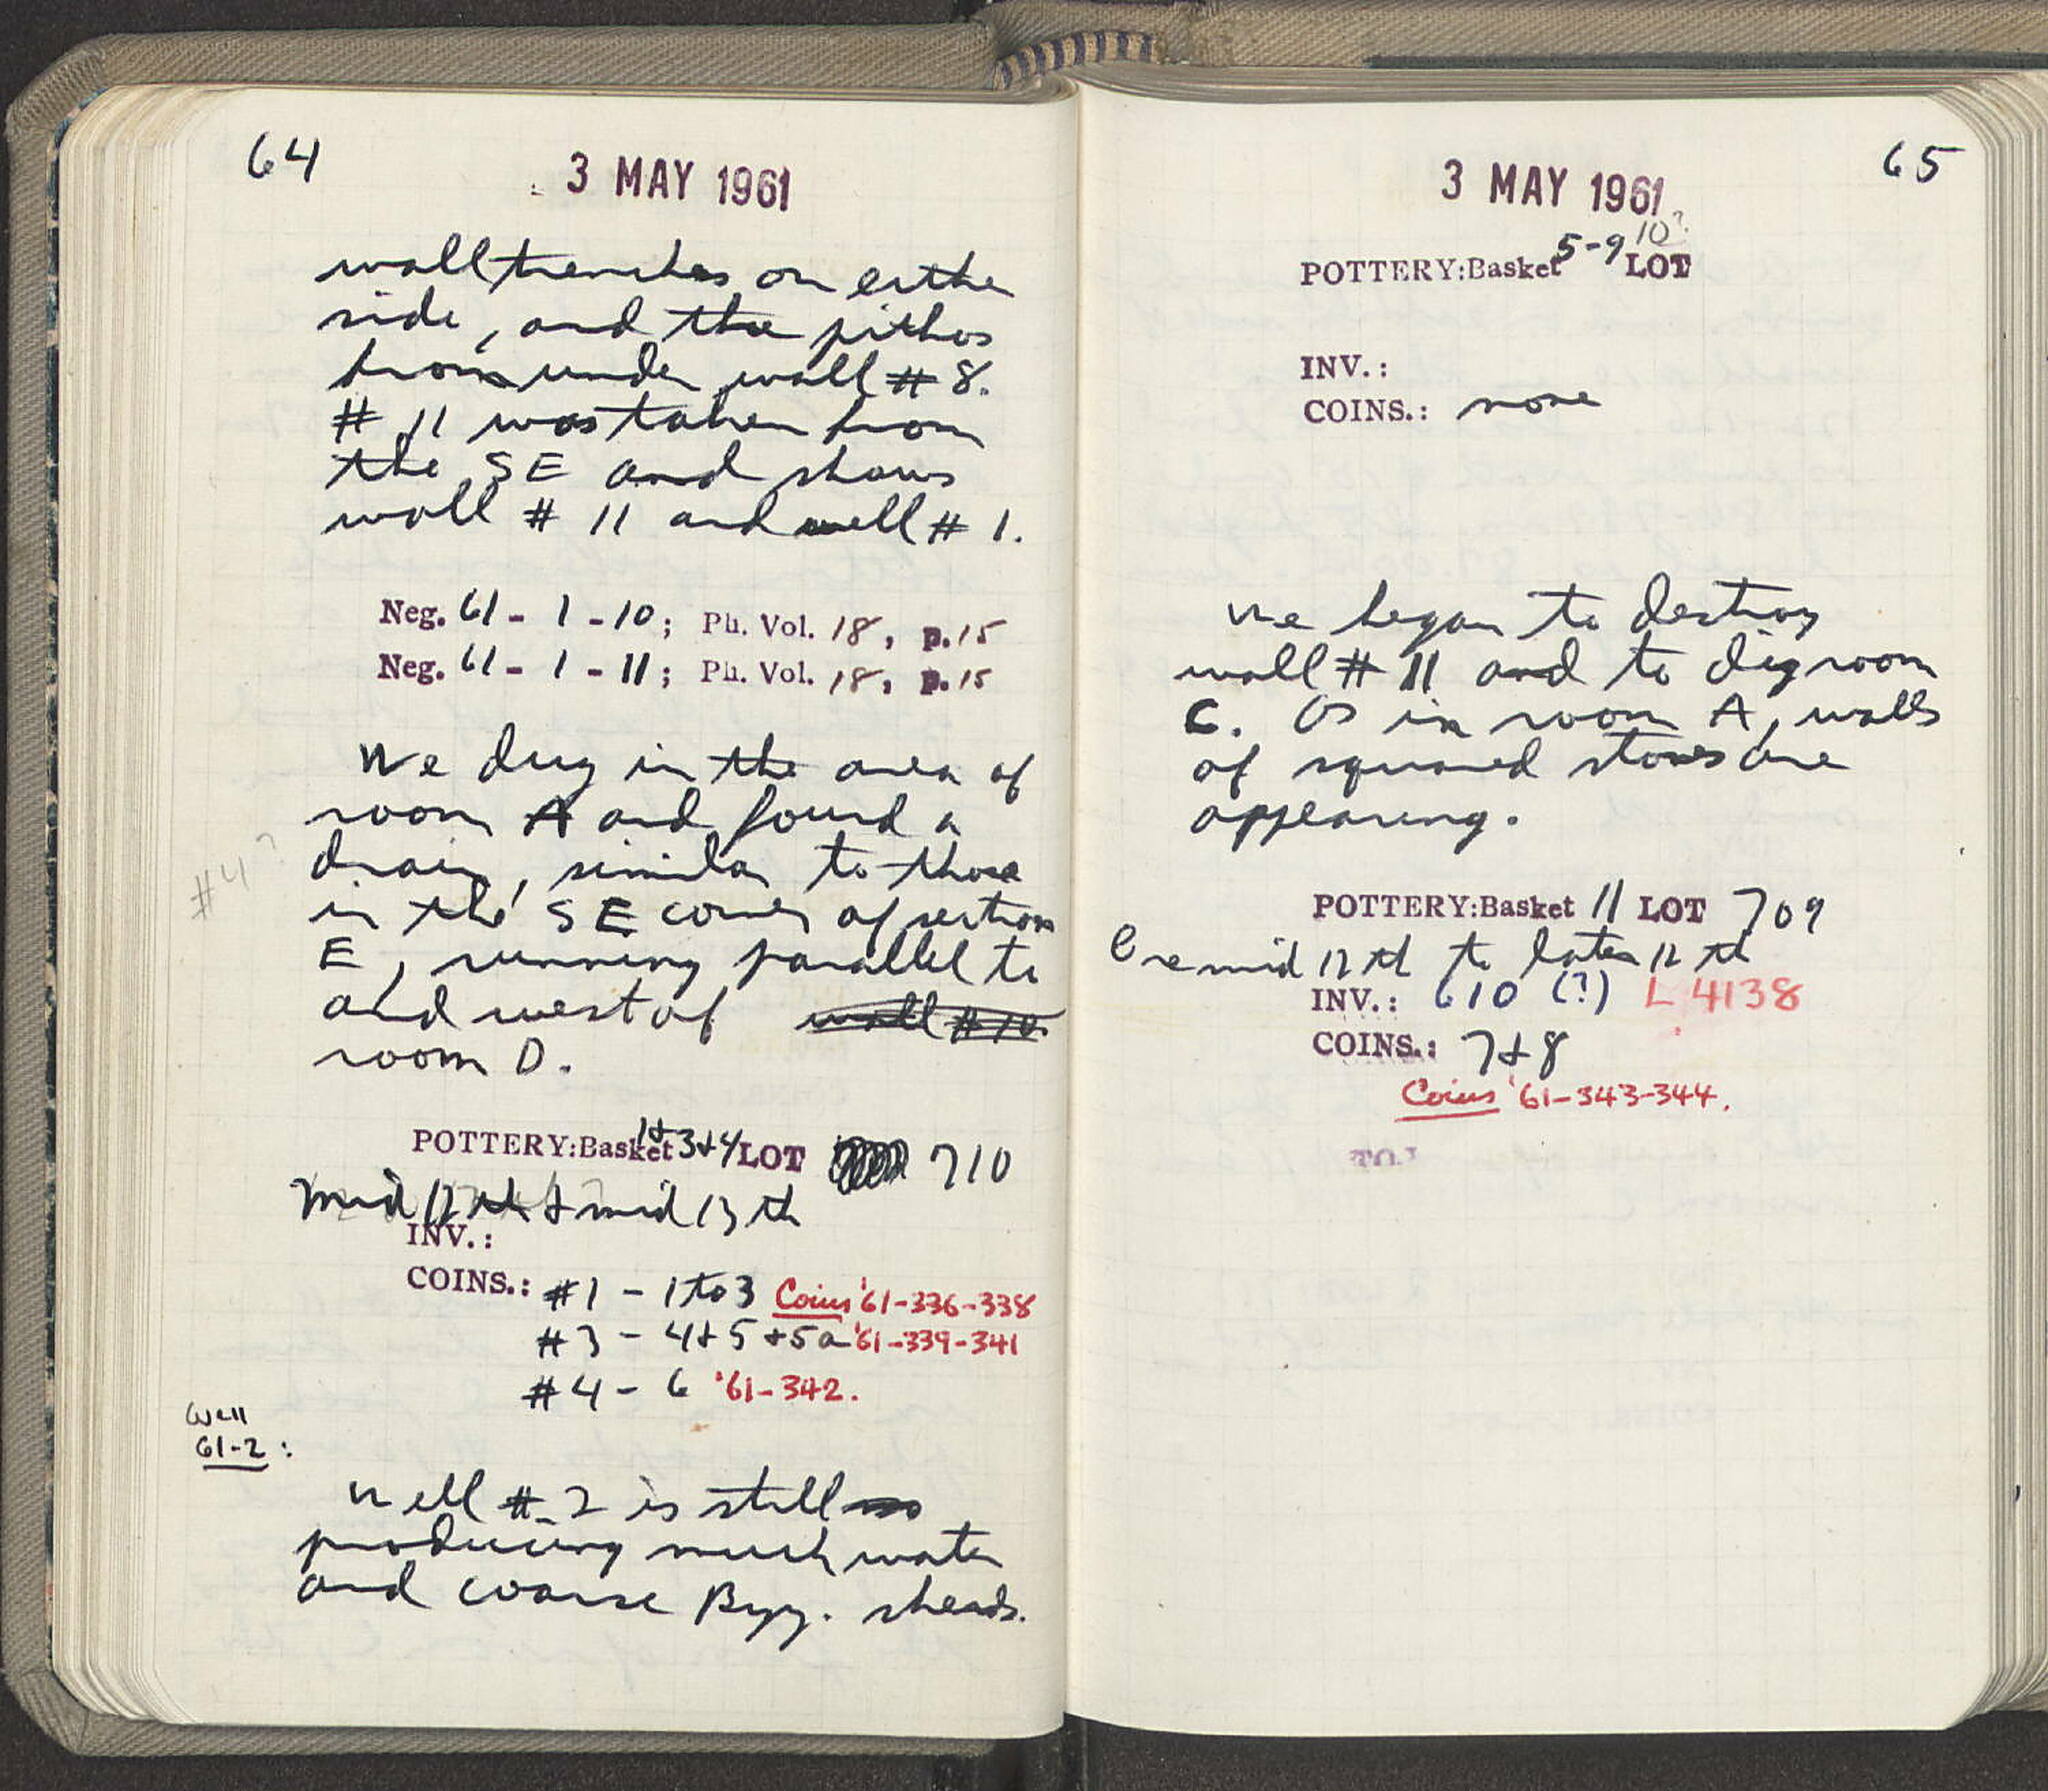 64
3 MAY 1961
wall trenches on eithe
side, and the pithos
from under wall # 8.
# 11 was taken from
the SE and shows
wall # 11 and well # 1.
Neg. 61 - 1 - 10; Ph. Vol. 18, p. 15
Neg. 61 - 1 - 11; Ph. Vol. 18, p. 15
We dug in the area of
room A and found a
#4?
drain, similar to those
in the SE corner of section
E, running parallel to
and west of wall #10
room D.
POTTERY: Basket 1+3+4 LOT 710
Mid 12 th + mid 13 th
INV.:
COINS.: #1 - 1 to 3 Coins '61-336-338
#3 - 4+5+5a '61-339-341
#4 - 6 '61-342.
Well
61-2:
Well #2 is still
producing much water
and coarse Byz. sherds.
65
3 MAY 1961
10?
POTTERY: Basket 5-9 LOT
INV.:
COINS.: none
We began to destroy
wall # 11 and to dig room
C. As in room A, walls
of squared stones are
appearing.
POTTERY: Basket 11 LOT 709
Pre mid 12 th to later 12 th
INV.: 610 (?) L 4138
COINS.: 7+8
Coins '61-343-344.
LOT